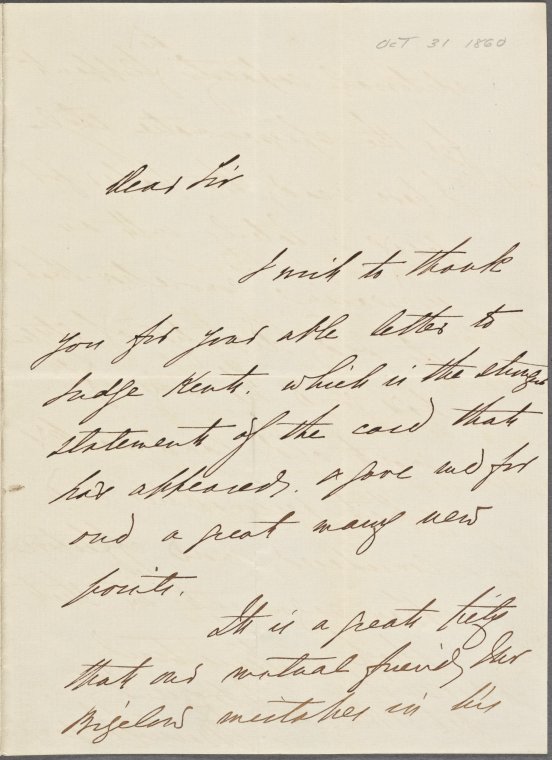 OCT 31 1860
Dear Sir
I wish to thank
you for your able letter to
Judge Kent. which is the
statement of the case that
has appeared. & gave me for
one a great many new
points.
It is a great pity
that our mutual friend, Mr
Bigelow mistakes in his